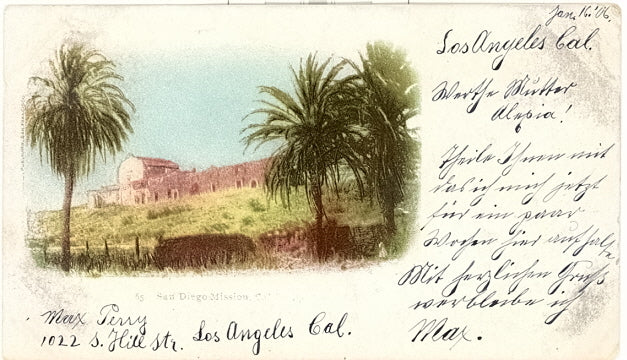 Jan. 16. '06.
Los Angeles Cal.
Werthe Mutter
Alexia!
Theile Ihnen mit
das ich mich jetzt
für ein paar
Wochen hier aufhalte.
Mit herzlichen Gruß
verbleibe ich
Max.
65 San Diego Mission,
Max Perry
1022 S. Hill Str. Los Angeles Cal.